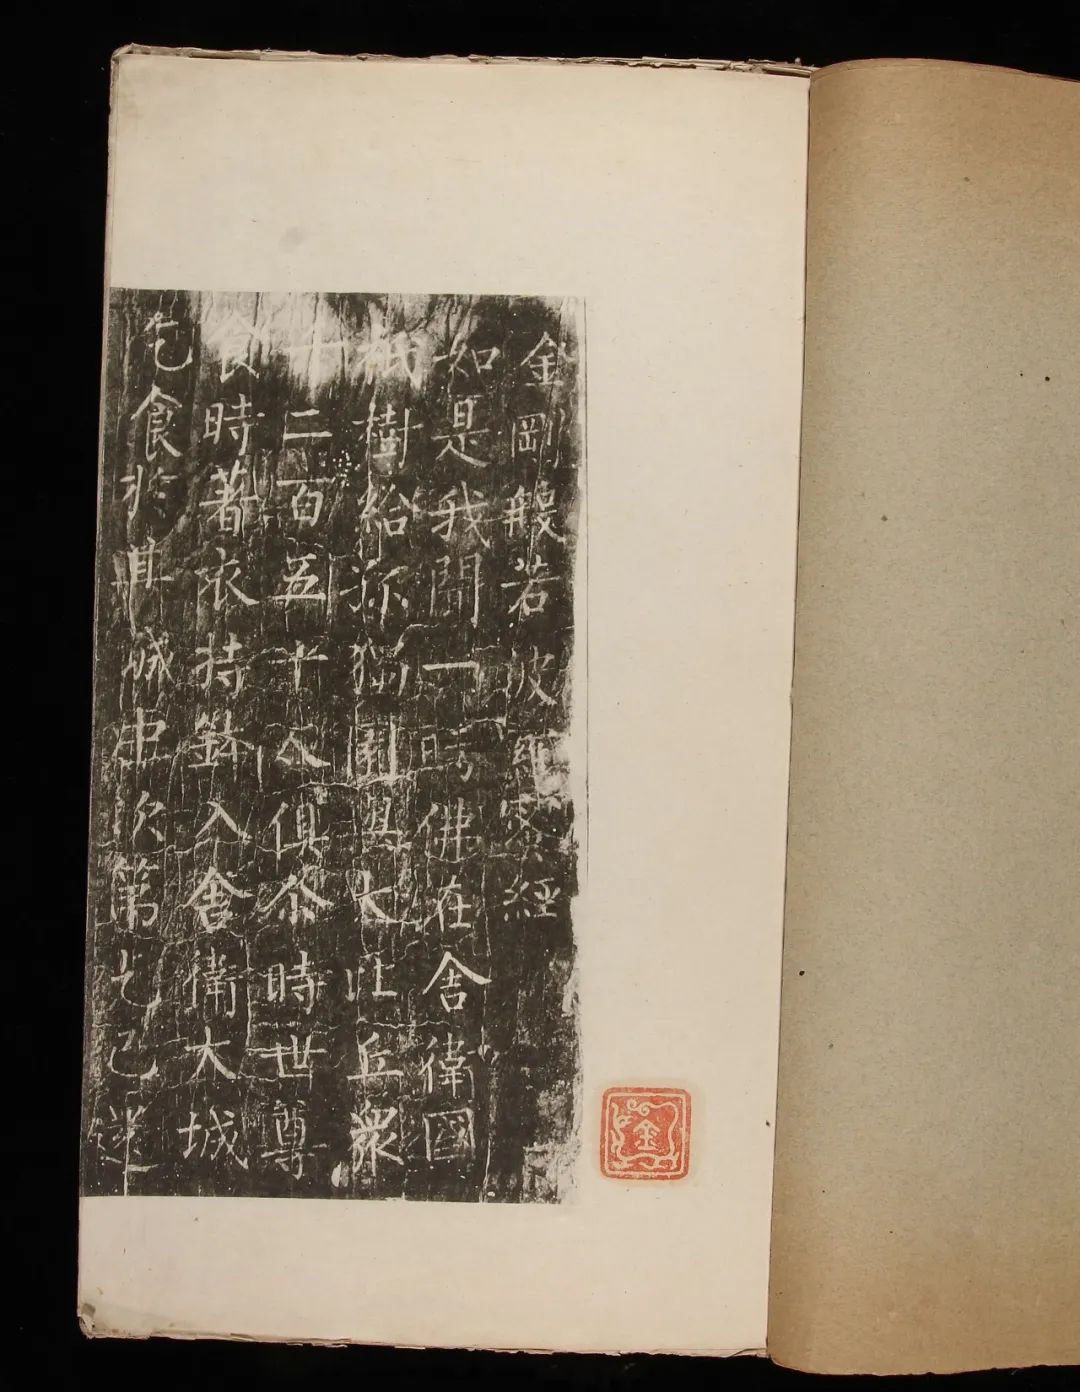 金剛般若波羅蜜經
如是我聞一時佛在舍衛國
祇樹給孤獨園與大比丘衆
千二百五十人俱尒時世尊
食時著衣持鉢入舍衛大城
乞食於其城中次第乞已還
金